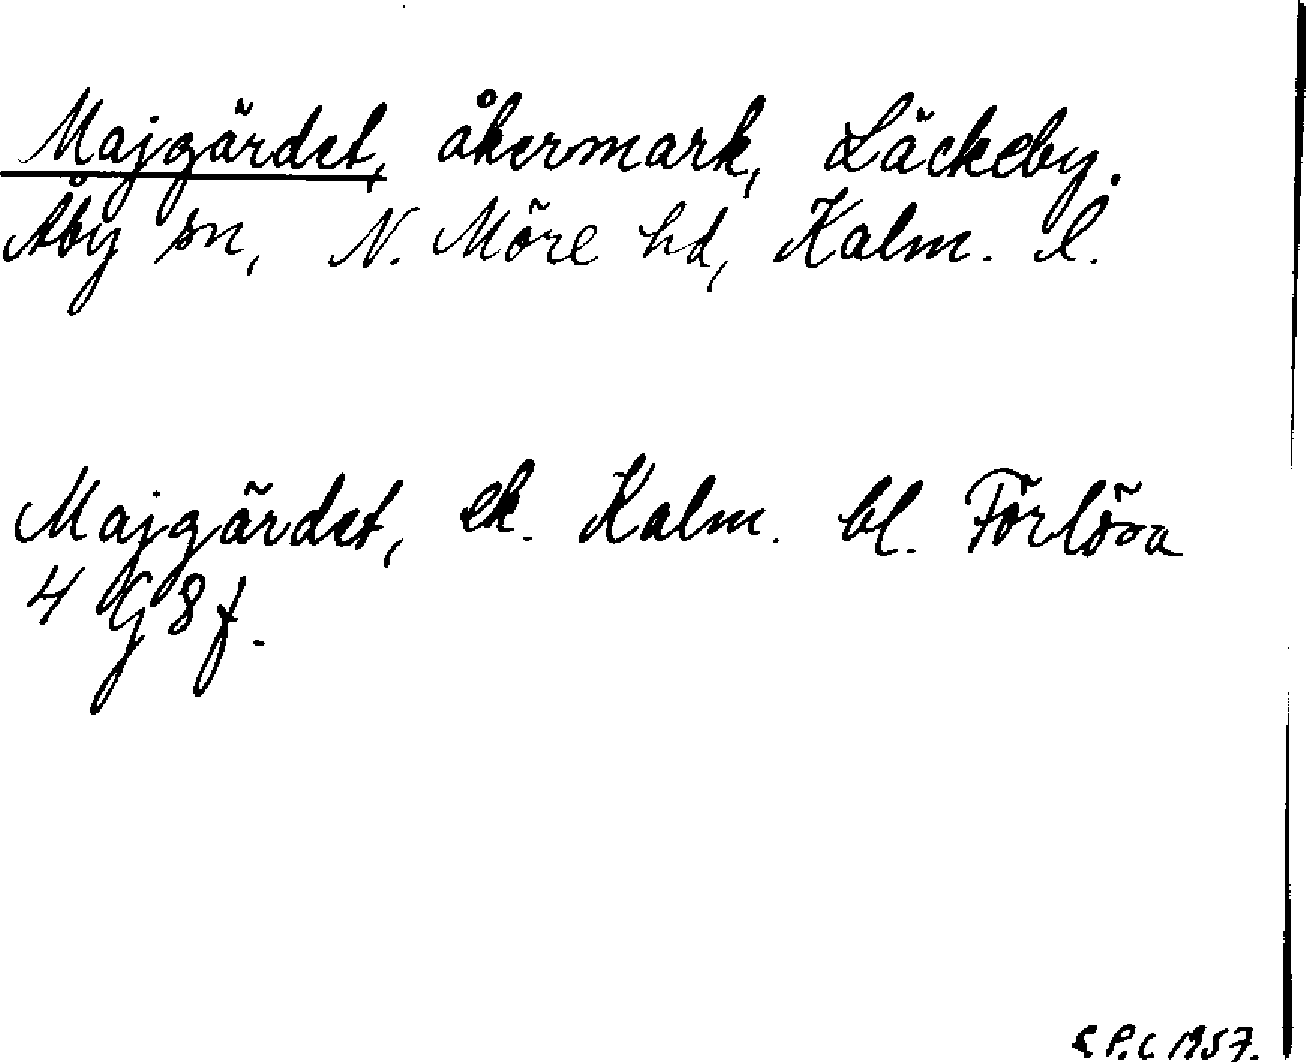 Majgärdet, åkermark, Läckeby.
Åby sn, N. Möre hd, Kalm. l.
Majgärdet, ek. Kalm. bl. Förlösa
4 G 8 f.
P. C 1957.